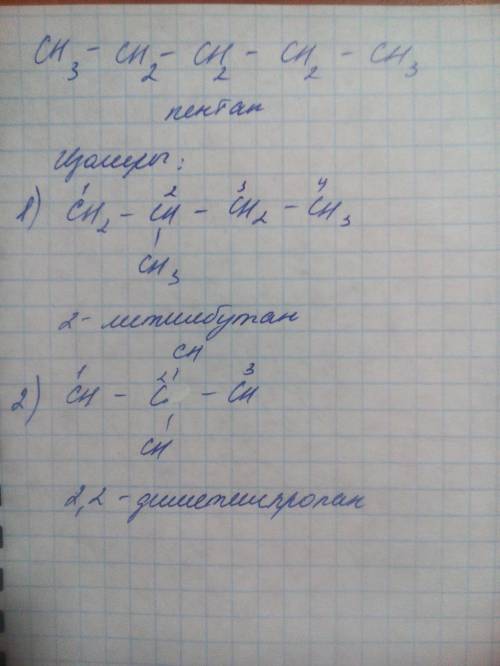 CH₃ – CH₂ – CH₂ – CH₂ – CH₃
пентан
Изомеры:
1) ¹CH₂ – ²CH – ³CH₂ – ⁴CH₃
CH₃
2-метилбутан
CH
2) ¹CH – ²C – ³CH
CH
2,2-диметилпропан